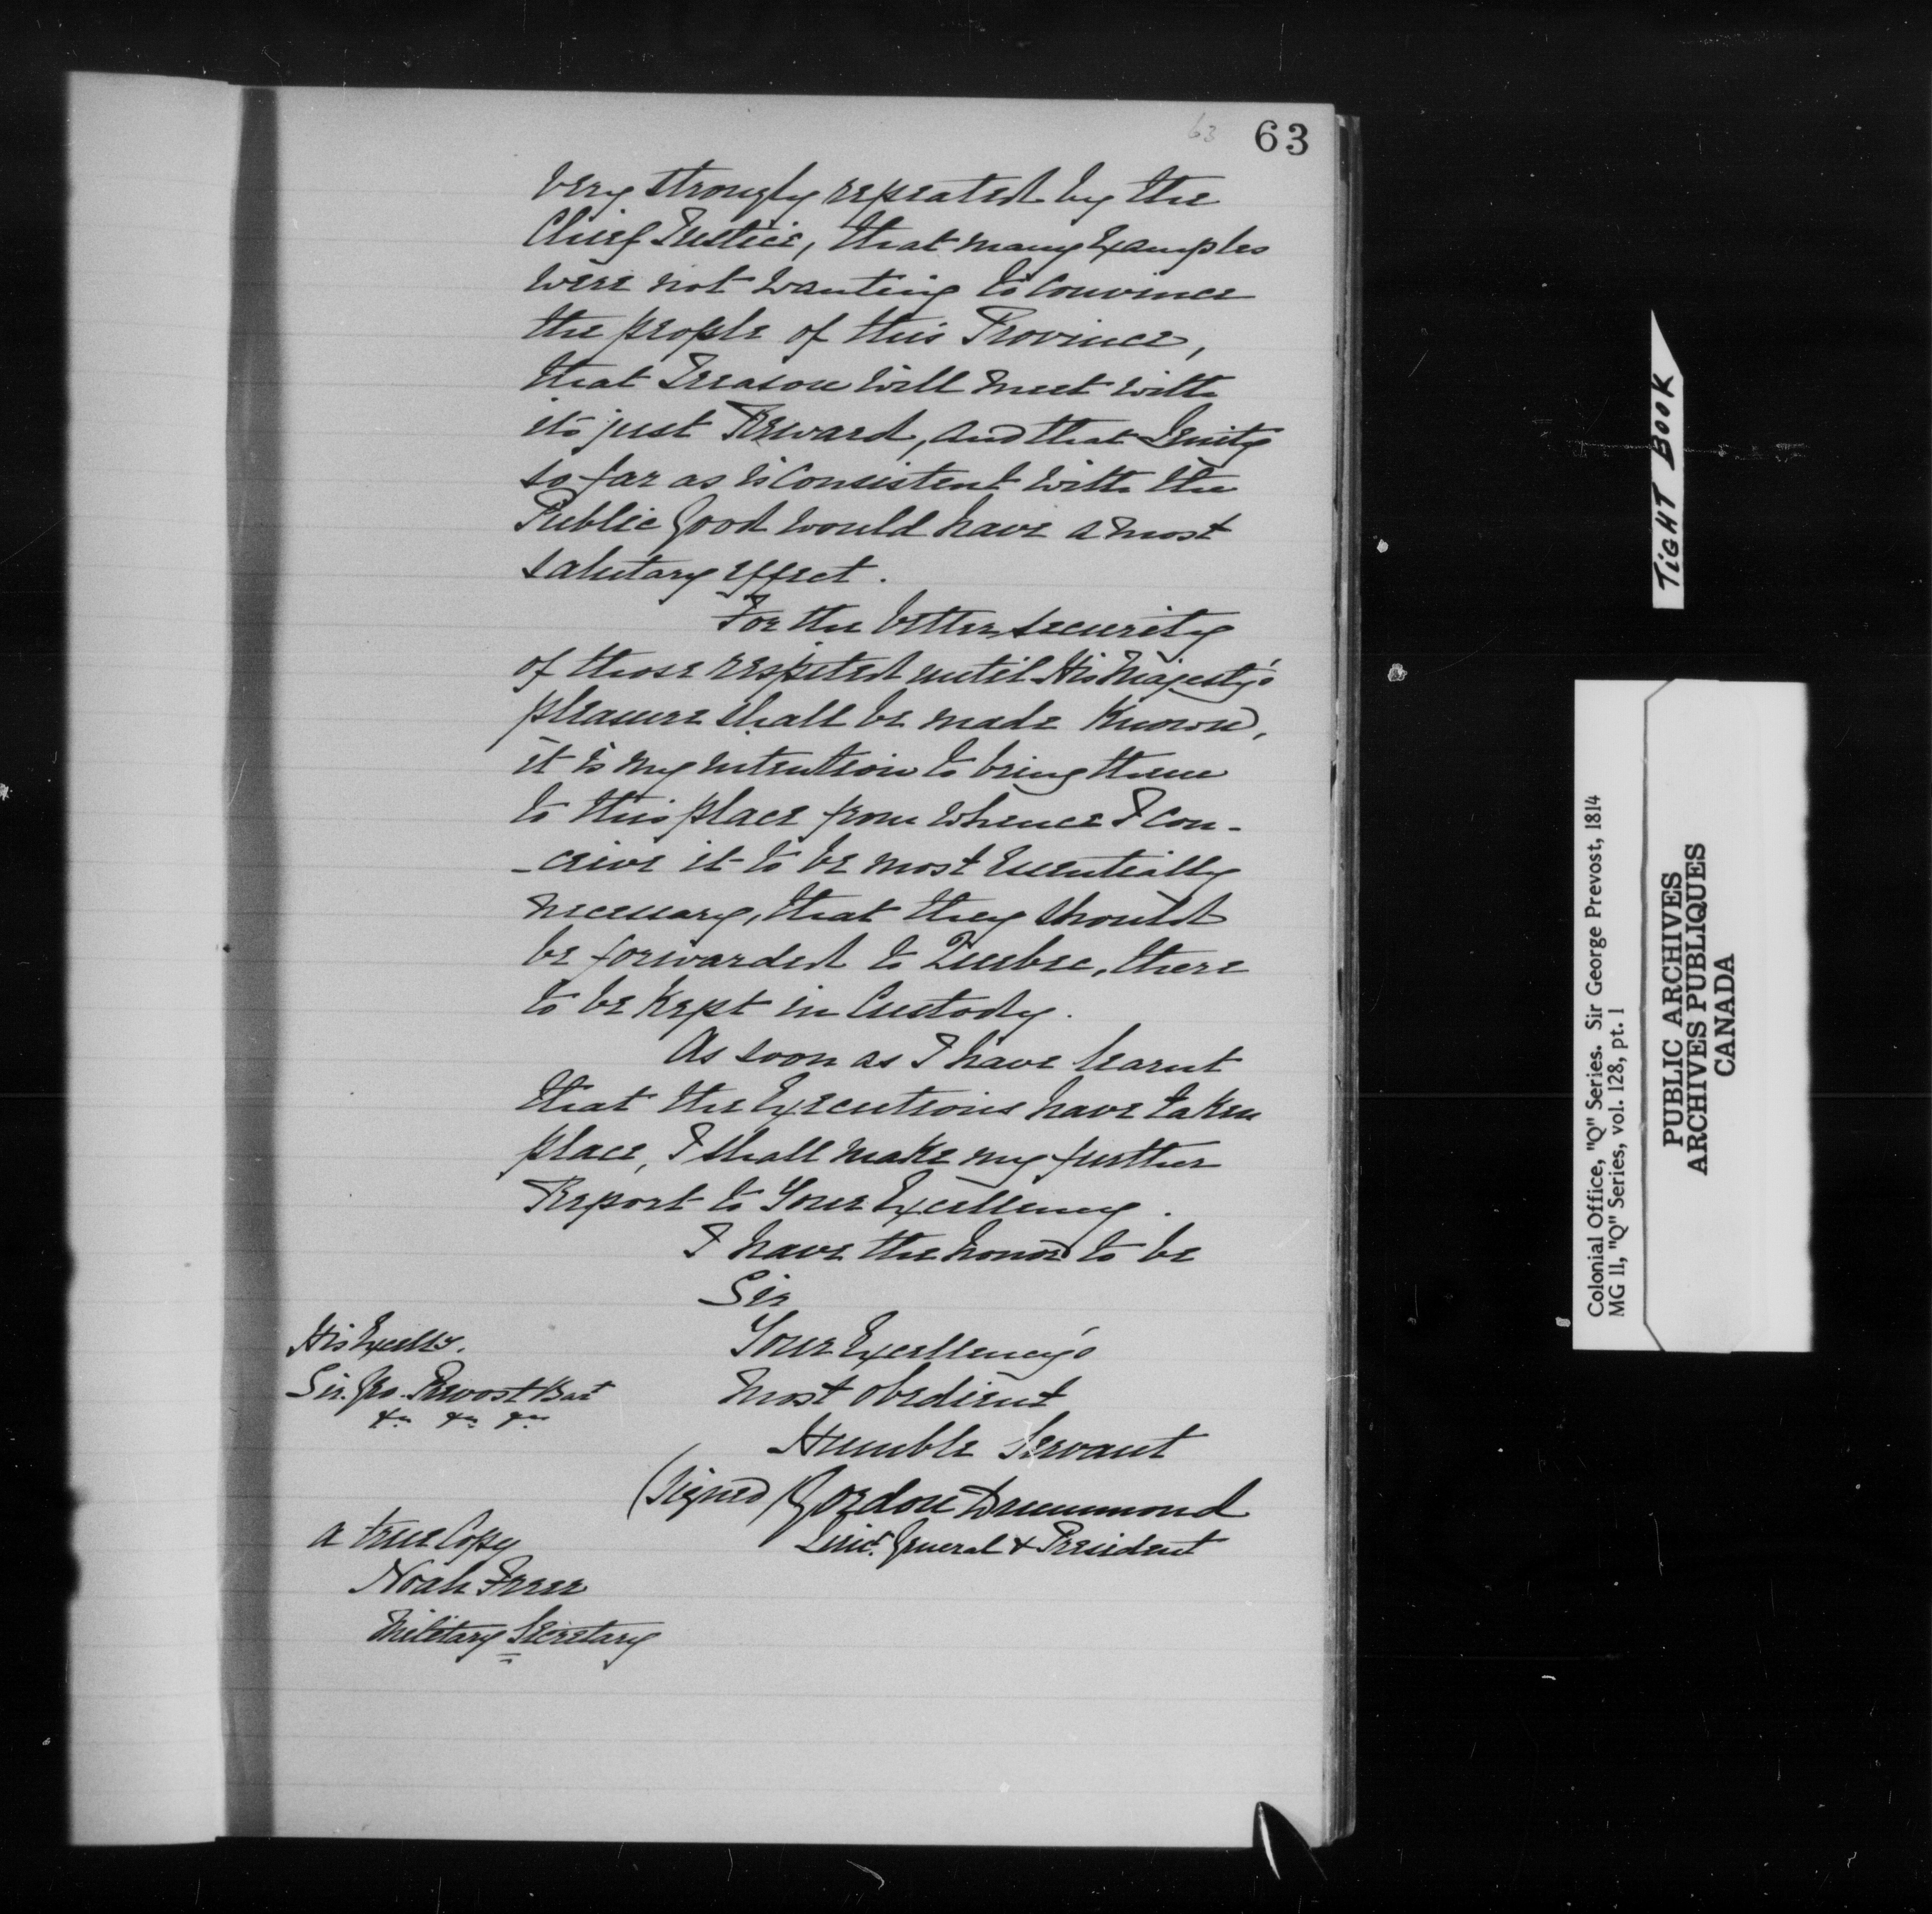 63 63
very strongly repeated by the
Chief Justice, that many Examples
were not wanting to convince
the people of this Province,
that Treason will meet with
its just Reward, and that Lenity
so far as is consistent with the
Public Good would have a most
salutary effect.
For the better security
of those respited until His Majesty's
pleasure shall be made Known,
it is my intention to bring them
to this place from whence I con-
-ceive it to be most Essentially
necessary, that they should
be forwarded to Quebec, there
to be Kept in Custody.
As soon as I have learnt
that the Executions have taken
place, I shall make my further
Report to Your Excellency.
I have the honor to be
Sir
Your Excellency's
most obedient
Humble Servant
(Signed) Gordon Drummond
Lieut. General & President
His Excelly.
Sir. Geo. Prevost Bart
&c &c &c
a true Copy
Noah Freer
Military Secretary
TiGHT BOOK
Colonial Office, "Q" Series. Sir George Prevost, 1814
MG 11, "Q" Series, vol. 128, pt. 1
PUBLIC ARCHIVES
ARCHIVES PUBLIQUES
CANADA